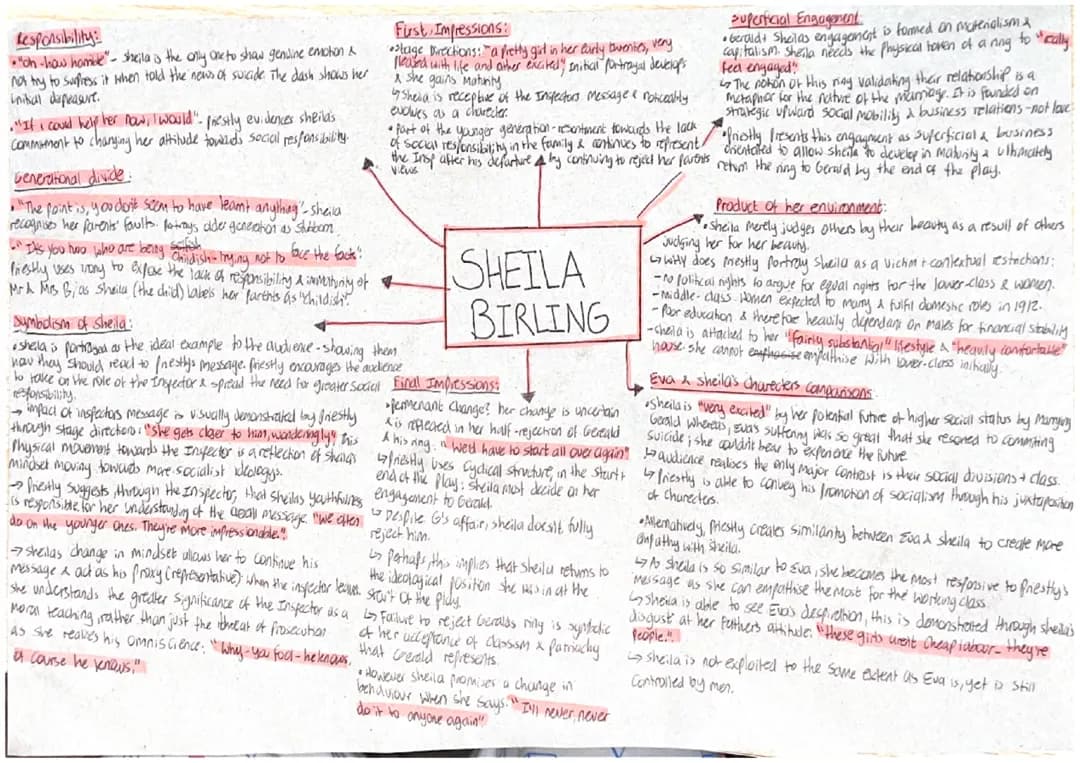 SHEILA
BIRLING
Responsibility:
• "oh - how horrible" - sheila is the only one to show genuine emotion &
not try to supress it when told the news of suicide. The dash shows her
initial
• "If I could help her now, I would" - priestly evidences sheilas
commitment to changing her attitude towards social responsibility.
Generational divide:
• "The point is, you don't seem to have learnt anything" - sheila
recognises her parents' faults. Portrays older generation as stubborn.
• "It's you two who are being childish - trying not to face the facts":
Priestly uses irony to expose the lack of responsibility & immaturity of
Mr & Mrs B, as sheila (the child) labels her parents as "childish".
Symbolism of sheila:
• sheila is portrayed as the ideal example to the audience - showing them
how they should react to priestly's message. priestly encourages the audience
to take on the role of the Inspector & spread the need for greater social
responsibility.
→ Impact of inspectors message is visually demonstrated by priestly
through stage direction: "she gets closer to him, wonderingly" This
physical movement towards the Inspector is a reflection of sheila's
mindset moving towards more socialist ideology.
→ Priestly suggests, through the Inspector, that sheilas youthfulness
is responsible for her understanding of the overall message. "we often
do on the younger ones. They're more impressionable."
→ sheilas change in mindset allows her to continue his
message & act as his proxy (representative) when the inspector leaves.
she understands the greater significance of the Inspector as a
moral teaching rather than just the threat of prosecution
as she realises his omniscience: "Why - you fool - he knows,
of course he knows."
First Impressions:
• Stage Directions: "a pretty girl in her early twenties, very
pleased with life and rather excited", Initial portrayal develops
& she gains maturity
↳ Sheila is receptive of the Inspectors message & noticeably
evolves as a charecter.
• Part of the younger generation - resentment towards the lack
of social responsibility in the family & continues to represent
the Insp after his departure by continuing to reject her parents
views
Final Impressions:
• Permenant Change? her change is uncertain
& is reflected in her half-rejection of Gerald
& his ring. "We'd have to start all over again"
↳ Priestly uses Cyclical structure, in the start &
end of the play: sheila must decide on her
engagement to Gerald.
↳ Despite G's affair, sheila doesn't fully
reject him.
↳ Perhaps, this implies that sheila returns to
the ideological position she was in at the
start of the play.
↳ Failure to reject Geralds ring is symbolic
of her acceptance of classism & patriachy
that Gerald represents.
• However sheila promises a change in
behaviour when she says: "I'll never, never
do it to anyone again"
Superficial Engagement
• Gerald & Sheilas engagement is formed on materialism &
capitalism. Sheila needs the physical token of a ring to "really
feel engaged".
↳ The notion of this ring validating their relationship is a
metaphor for the nature of the marriage. It is founded on
strategic upward social mobility & business relations - not love
• Priestly Presents this engagment as superficial & business
orientated to allow sheila to develop in maturity & ultimately
return the ring to Gerald by the end of the play.
Product of her environment:
• Sheila merely judges others by their beauty as a result of others
judging her for her beauty.
↳ Why does priestly portray sheila as a victim + contextual restrictions:
- no political rights to argue for equal rights for the lower-class & women.
- middle-class women expected to marry & fulfil domestic roles in 1912.
- Poor education & therefore heavily dependant on males for financial stability
- sheila is attached to her "fairly substantial" lifestyle & "heavily comfortable"
house. she cannot empathise with lower-class initially.
Eva & sheila's charecters comparisons:
• Sheila is "very excited" by her potential future of higher social status by marrying
Gerald whereas, Eva's suffering was so great that she resorted to commiting
suicide; she couldn't bear to experience the future.
↳ audience realises the only major contrast is their social divisions + class.
↳ Priestly is able to convey his promotion of socialism through his juxtaposition
of charecters.
• Alternatively, priestly creates similarity between Eva & sheila to create more
empathy with sheila.
↳ As sheila is so similar to Eva, she becomes the most responsive to priestly's
message as she can empathise the most for the working class
↳ Sheila is able to see Eva's this is demonstrated through sheila's
disgust at her fathers attitude: "these girls arent cheap labour - they're
people."
↳ sheila is not exploited to the same extent as Eva is, yet is still
controlled by men.